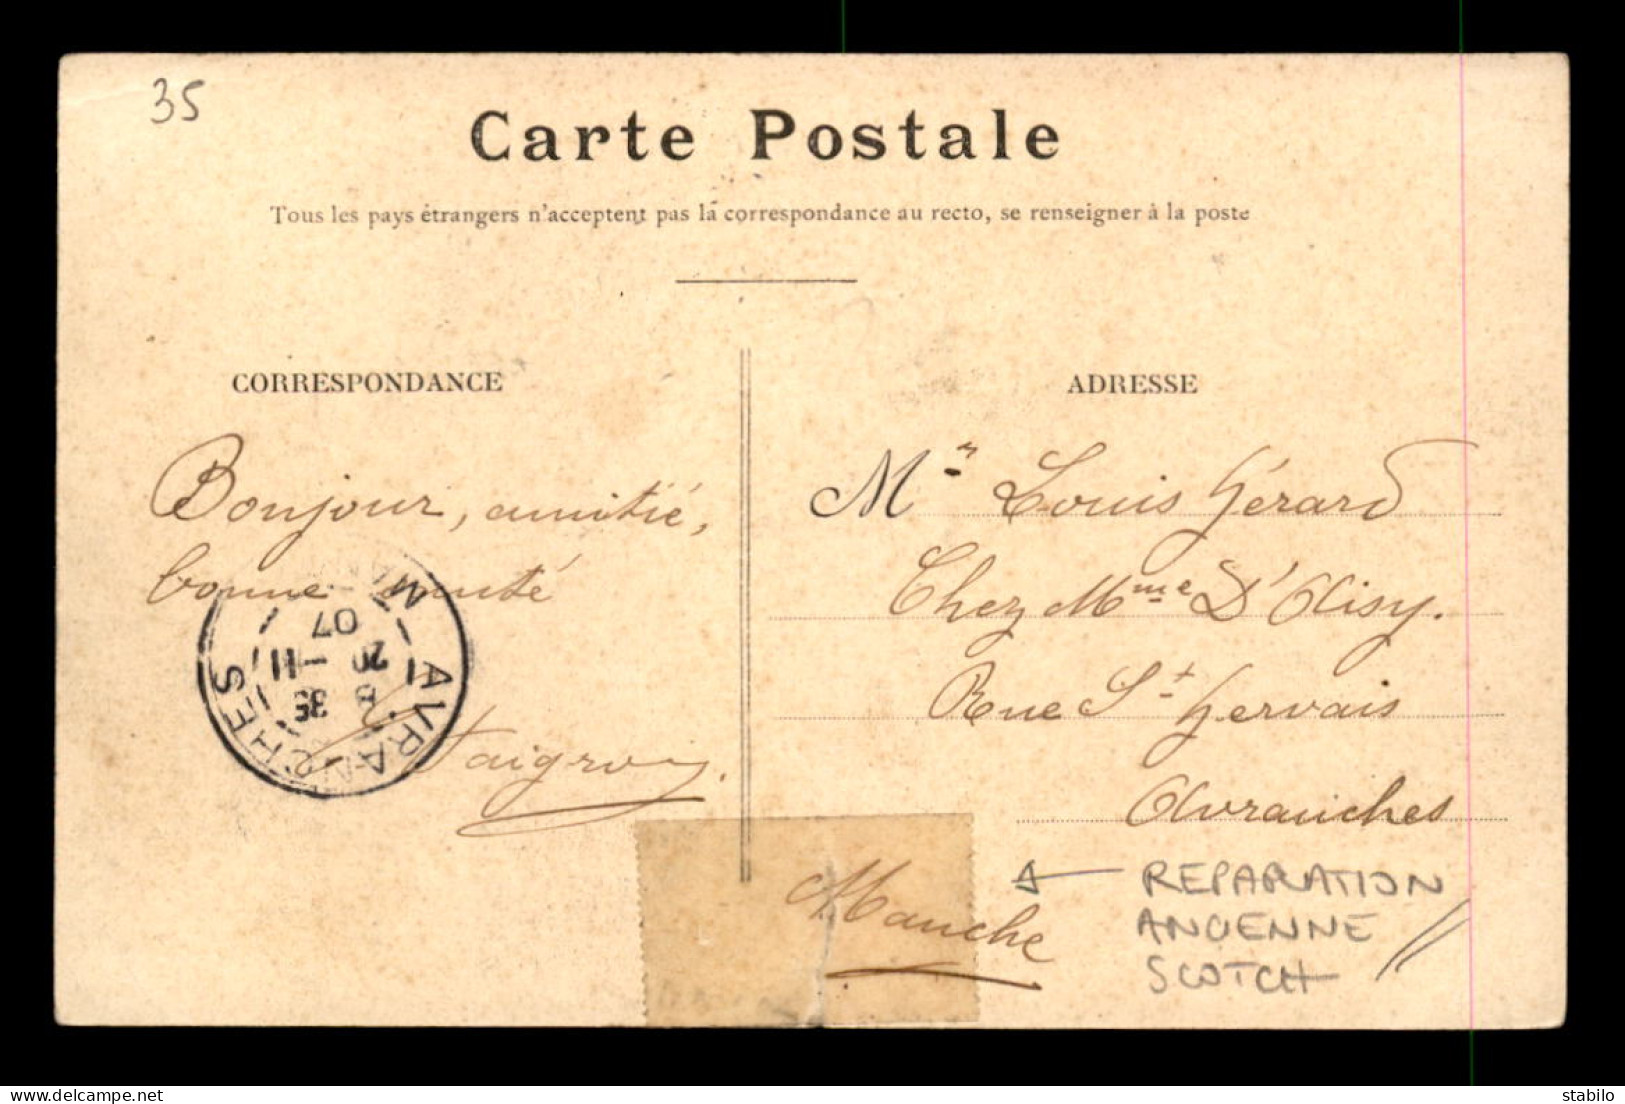 35
Carte Postale
Tous les pays étrangers n'acceptent pas la correspondance au recto, se renseigner à la poste
CORRESPONDANCE
ADRESSE
Bonjour, amitié,
bonne santé
AVRANCHES
8 35
20 - 11
07
Mr Louis Gérard
Chez Mme D'Olisy.
Rue St Gervais
Avranches
Manche
REPARATION
ANCIENNE
SCOTCH
delcampe.net
stabilo